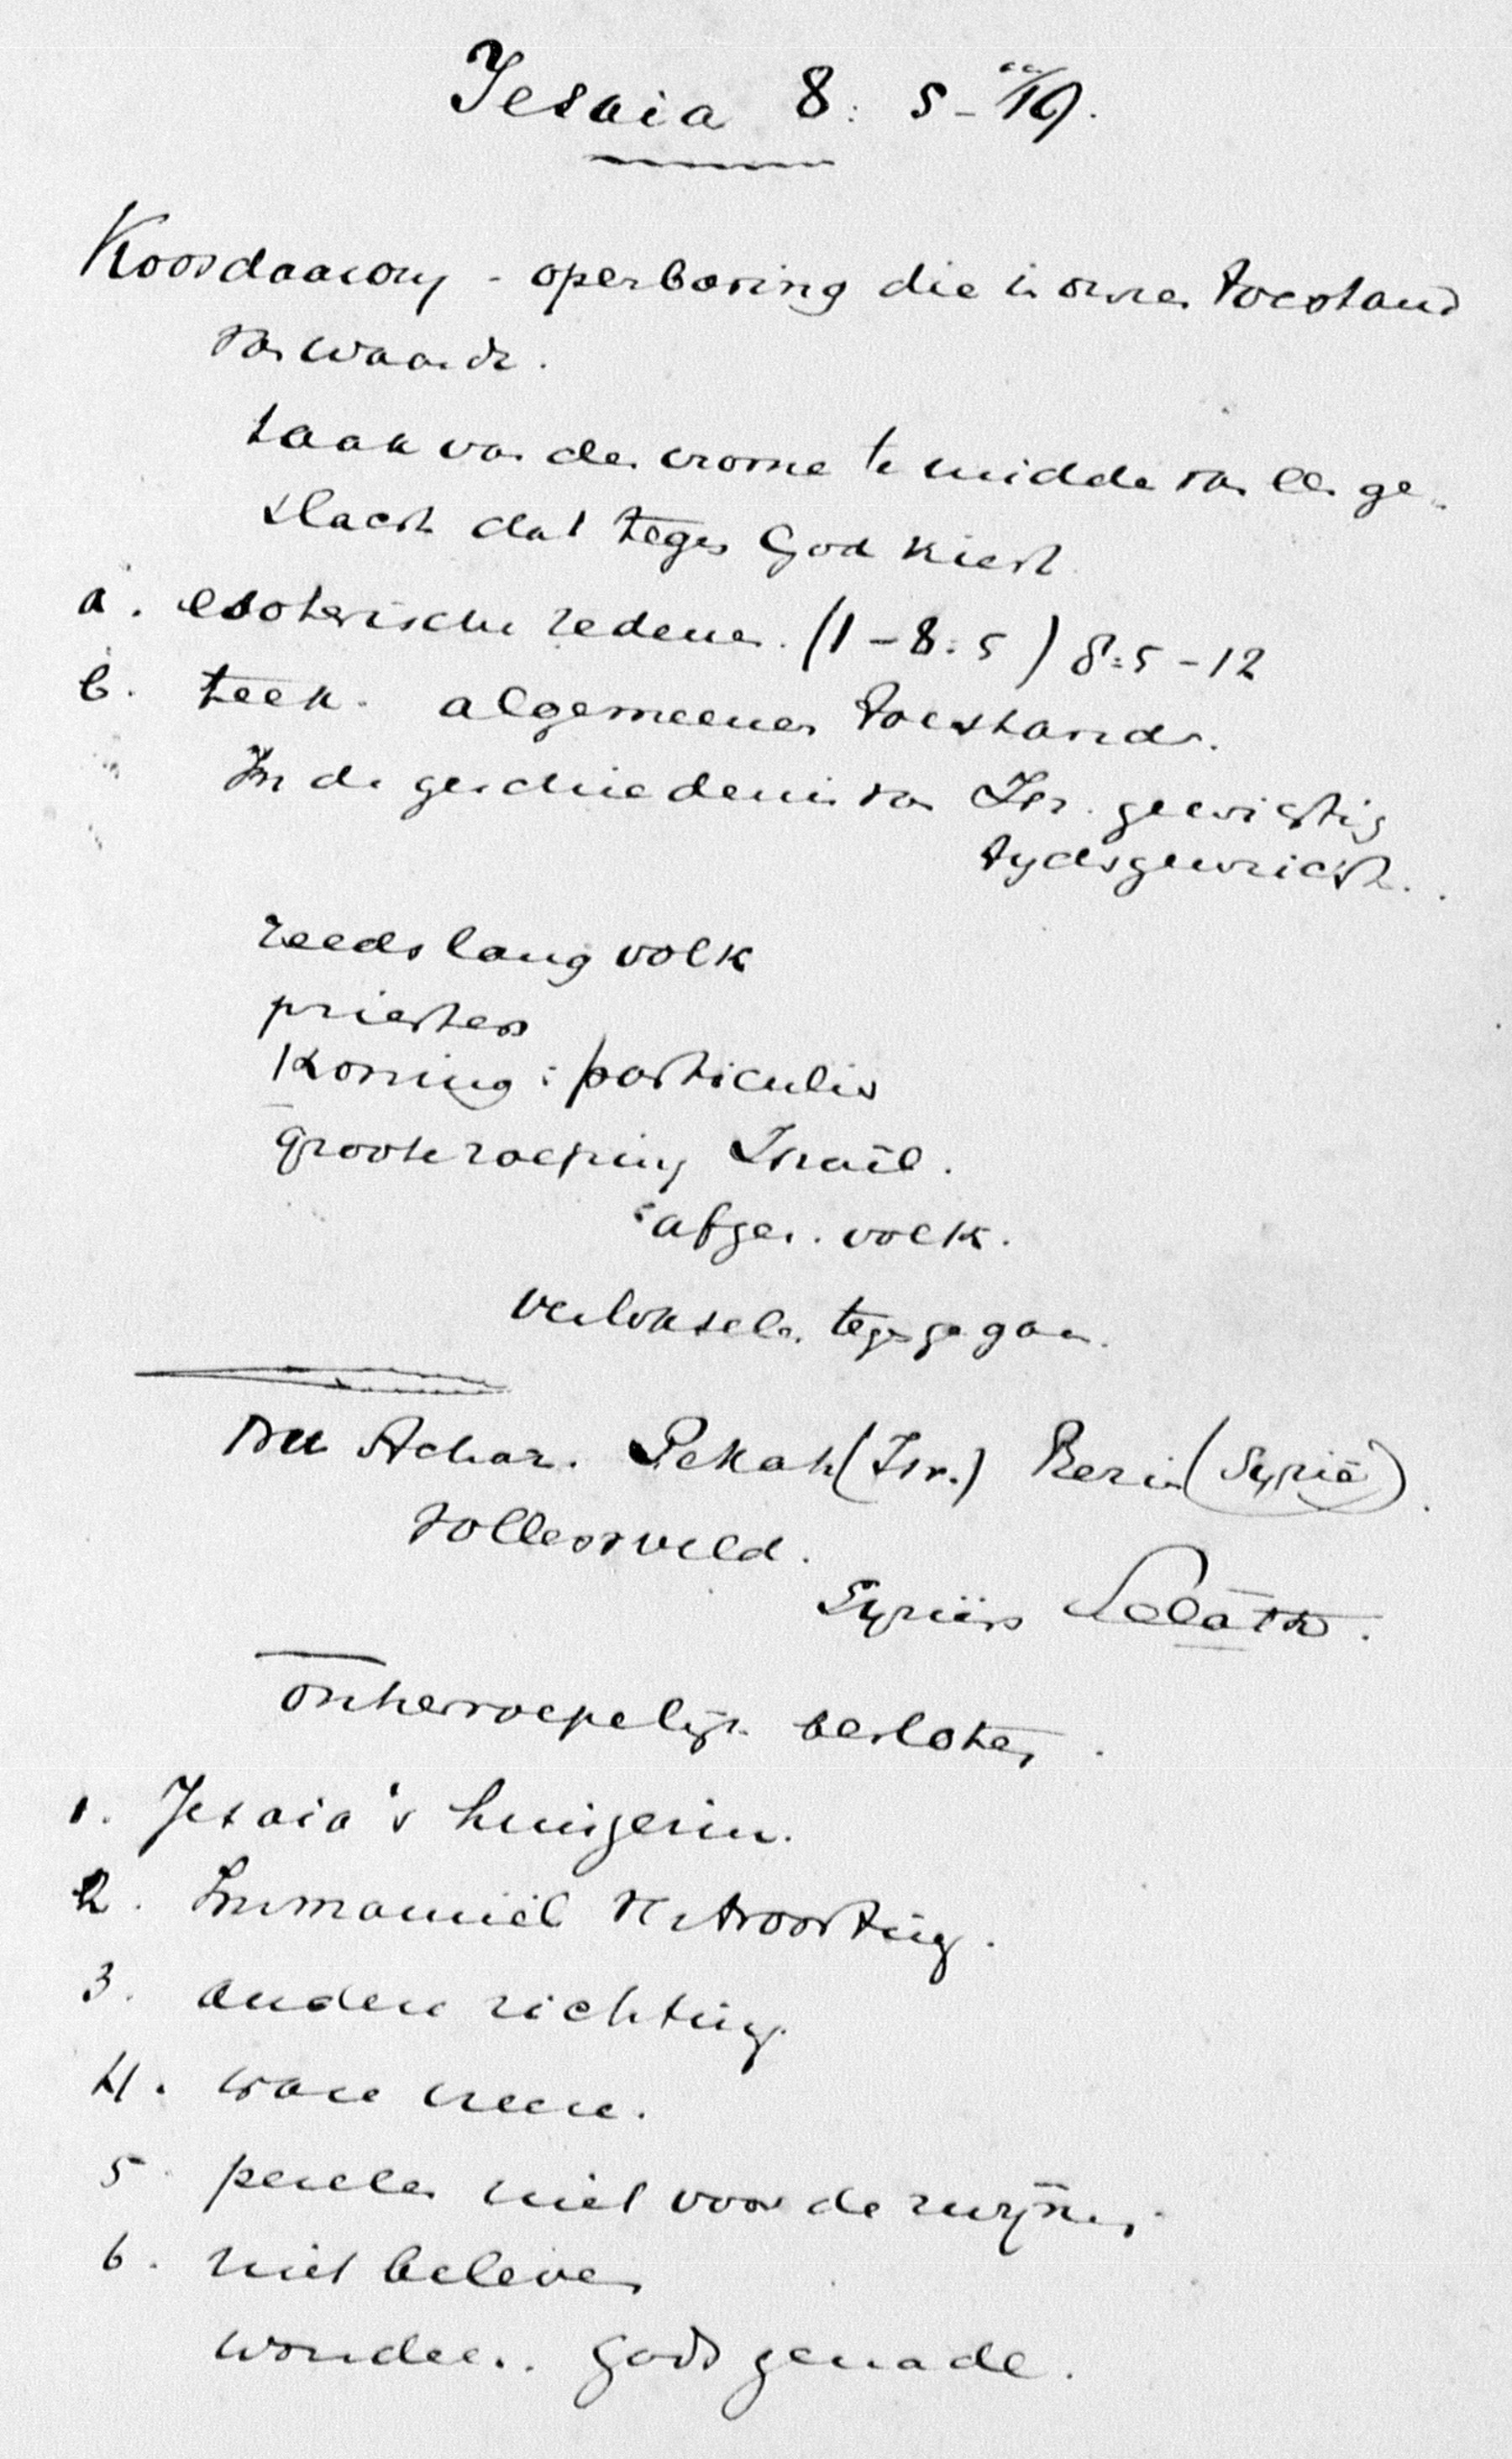 Jesaia 8: 5-19.
Koosdaawory - openbaring die in onze toestand
van waarde.
taak van den vrome te midden van een ge-
slacht dat tegen God kiest
a. esoterische redenen. (1-8:5) 8:5-12
b. teek. algemeenen toestand.
In de geschiedenis van Isr. gewichtig
tydsgewricht.
reeds lang volk
priesters
Koning: particulis
Groote roeping Israël.
: afgez. volk.
verlokselen tegengegaan.
Nu Achaz. Pekah (Isr.) Rezin (Syrië).
vollersweld.
Syriërs Elath.
onherroepelijk besloten.
1. Jesaia's huisgezin.
2. Immanuël
3. andere richting
4. ware vreeze.
5. peerlen niet voor de zwijnen
6. niet beleven
wonder. Gods genade.